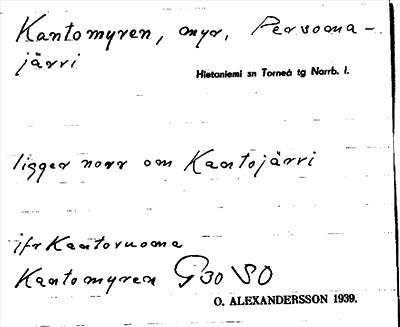 Kantomyren, myr, Persoma-
järvi
Hietaniemi sn Torneå tg Norrb. l.
ligger norr om Kantojärvi
jfr Kantovuoma
Kantomyren G30 SO
O. ALEXANDERSSON 1939.